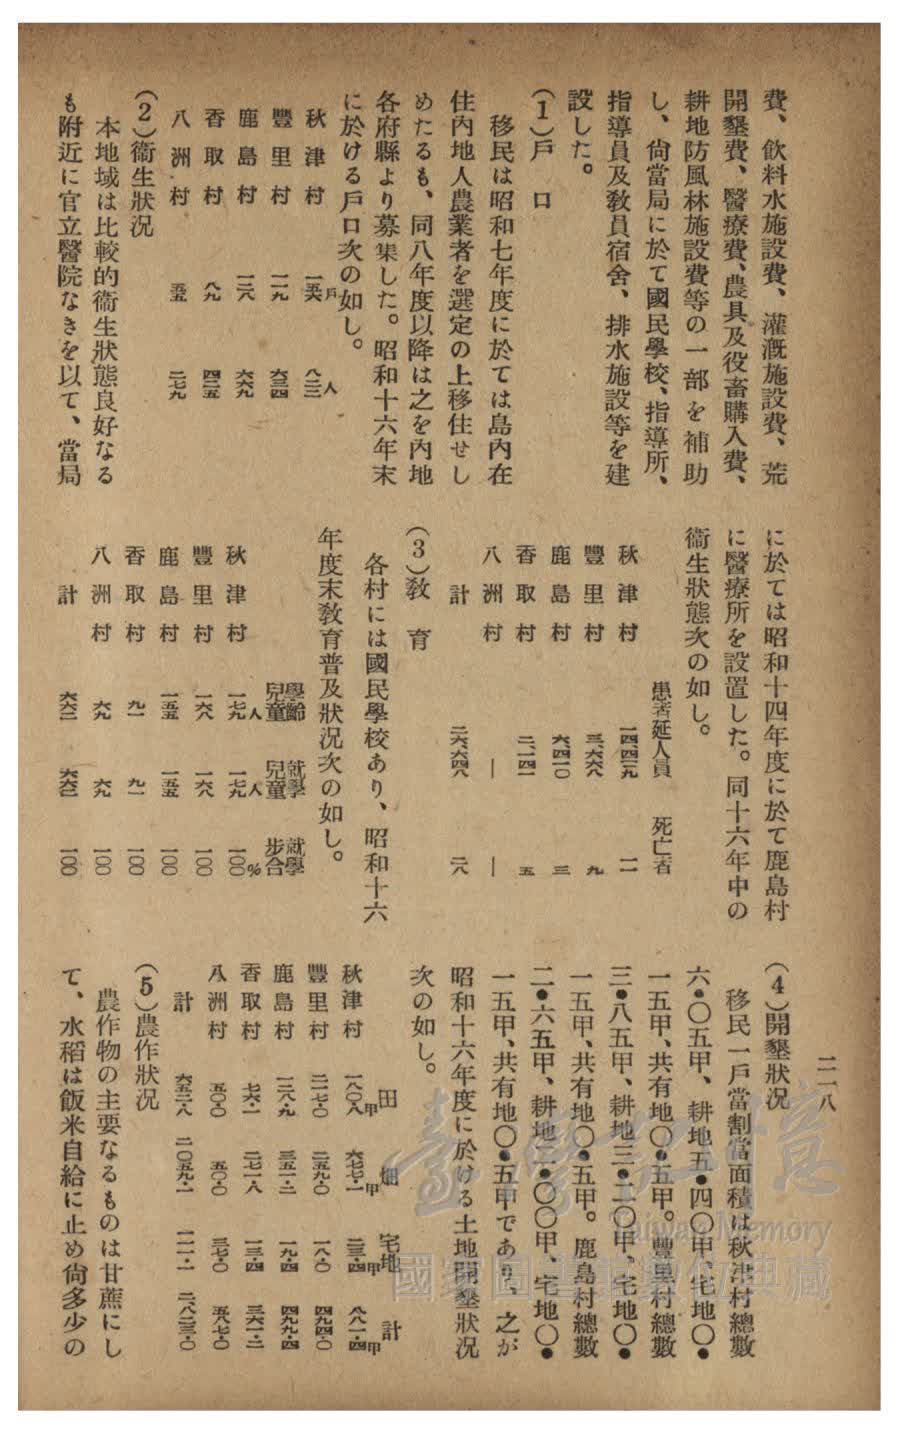 二一八
費、飮料水施設費、灌漑施設費、荒
開墾費、醫療費、農具及役畜購入費、
耕地防風林施設費等の一部を補助
し、尙當局に於て國民學校、指導所、
指導員及敎員宿舍、排水施設等を建
設した。
(1)戶 口
移民は昭和七年度に於ては島內在
住內地人農業者を選定の上移住せし
めたるも、同八年度以降は之を內地
各府縣より募集した。昭和十六年末
に於ける戶口次の如し。
秋津村 一五六戶 八二三人
豐里村 一一九 六三四
鹿島村 一二六 六六九
香取村 八九 四二五
八洲村 五五 二七九
(2)衞生狀況
本地域は比較的衞生狀態良好なる
も附近に官立醫院なきを以て、當局
に於ては昭和十四年度に於て鹿島村
に醫療所を設置した。同十六年中の
衞生狀態次の如し。
患者延人員 死亡者
秋津村 一四、四二九 一一
豐里村 三、六六八 九
鹿島村 六、四一〇 三
香取村 二、一四一 五
八洲村 — —
計 二六、六四八 二八
(3)敎 育
各村には國民學校あり、昭和十六
年度末敎育普及狀況次の如し。
學齡兒童 就學兒童 就學步合
秋津村 一七九人 一七九人 一〇〇%
豐里村 一六八 一六八 一〇〇
鹿島村 一五五 一五五 一〇〇
香取村 九一 九一 一〇〇
八洲村 六九 六九 一〇〇
計 六六二 六六二 一〇〇
(4)開墾狀況
移民一戶當割當面積は秋津村總數
六•〇五甲、耕地五•四〇甲、宅地〇•
一五甲、共有地〇•五甲。豐里村總數
三•八五甲、耕地三•二〇甲、宅地〇•
一五甲、共有地〇•五甲。鹿島村總數
二•六五甲、耕地二•〇〇甲、宅地〇•
一五甲、共有地〇•五甲であり、之が
昭和十六年度に於ける土地開墾狀況
次の如し。
田 畑 宅地 計
秋津村 一八〇•八甲 六七七•一甲 二三•四甲 八八一•四甲
豐里村 二一七•〇 二五九•〇 一八•〇 四九四•〇
鹿島村 一二八•九 三五一•二 一九•四 四九九•四
香取村 七六•一 二七一•八 一三•四 三六一•二
八洲村 五〇•〇 五〇〇•〇 三七•〇 五八七•〇
計 六五二•八 二〇五九•一 一一一•一 二八二三•〇
(5)農作狀況
農作物の主要なるものは甘蔗にし
て、水稻は飯米自給に止め尙多少の
臺灣記憶
Taiwan Memory
國家圖書館數位典藏